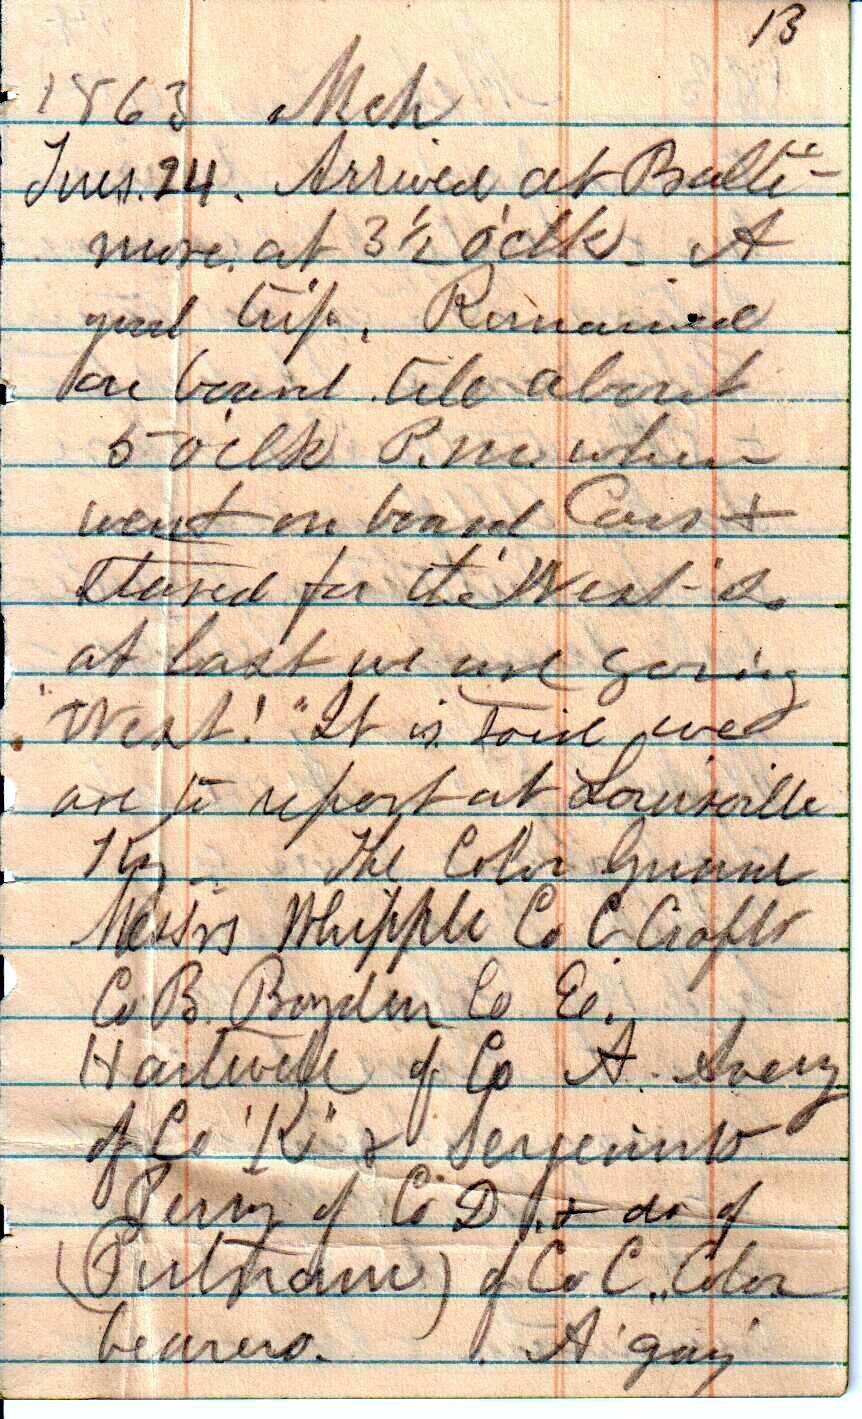 13
1863 Mch
Tues. 24. Arrived at Balti-
more at 3 1/2 o'clk. A
good trip. Remained
on board till about
5 o'clk P.m. when
went on board Cars +
stared for the "West" so
at last we are going
West! "It is said we
are to report at Louisville
Ky. The Color Guard
Messrs Whipple Co C Crafts
Co B. Boyden Co E.
Hartwell of Co A. Avery
of Co "K" & Sergeants
Perry of Co D. & do of
(Putnam) of Co C, Color
bearers. A 'gay'